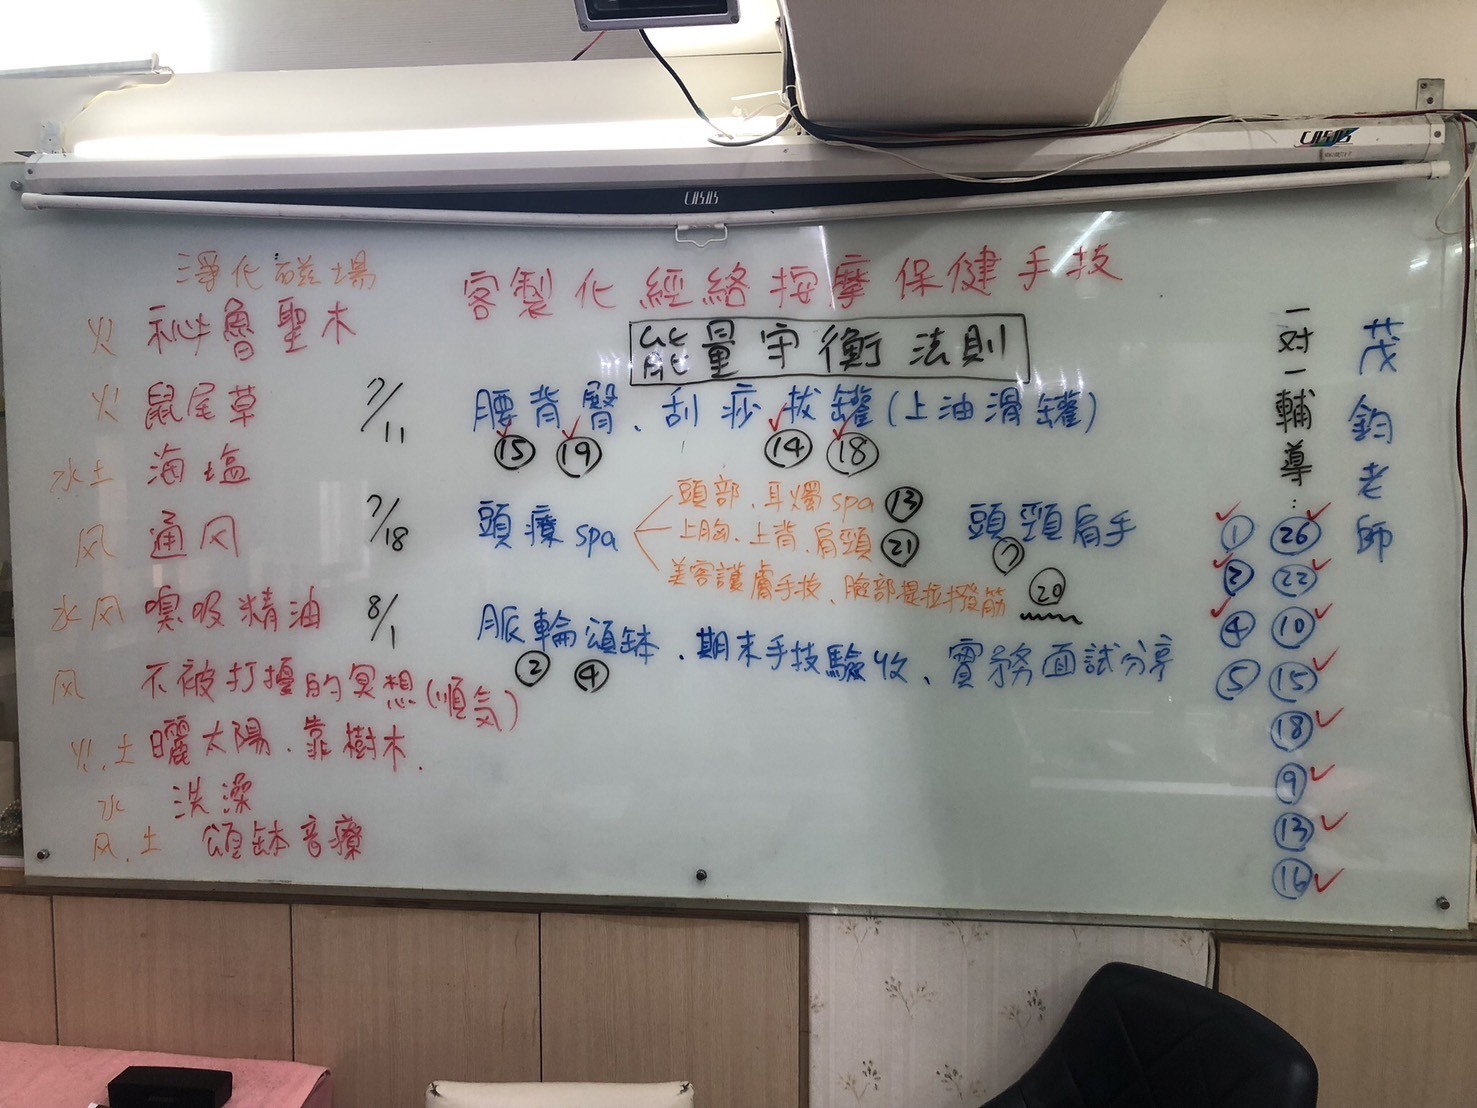 CASOS
CASOS
淨化磁場
火 秘魯聖木
火 鼠尾草
水土 海塩
风 通风
水风 嗅吸精油
风 不被打擾的冥想(順気)
火.土 曬太陽.靠樹木.
水 洗澡
风.土 頌缽音療
客製化經絡按摩保健手技
能量守衡法則
7/11 腰背臀、刮痧拔罐(上油滑罐)
⑮ ⑲ ⑭ ⑱
7/18 頭療spa
頭部.耳燭spa ⑬
上胸、上背、肩頸 ㉑
美容護膚手技、臉部提拉撥筋 ⑳
頭頸肩手
⑦
8/1 脈輪頌缽.期末手技驗收、實務面試分享
② ④
一对一輔導:
① ㉖
② ㉒
④ ⑩
⑤ ⑮
⑱
⑨
⑬
⑯
茂鈞老師